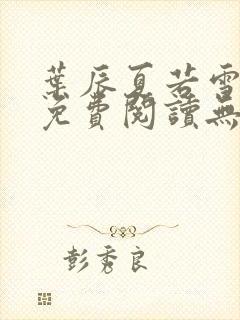 葉辰夏若雪
免費閱讀無
彭秀良